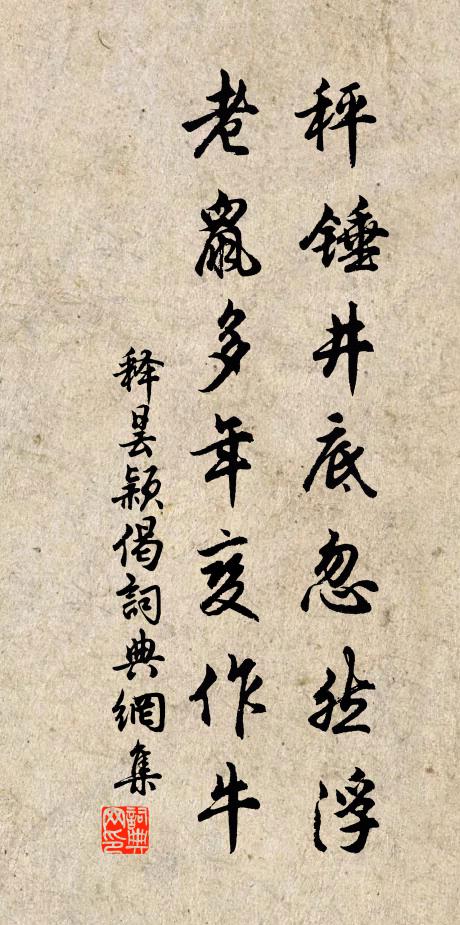 秤锤井底忽然浮
老鼠多年变作牛
释昙颖偈詞典網集
詞典网印